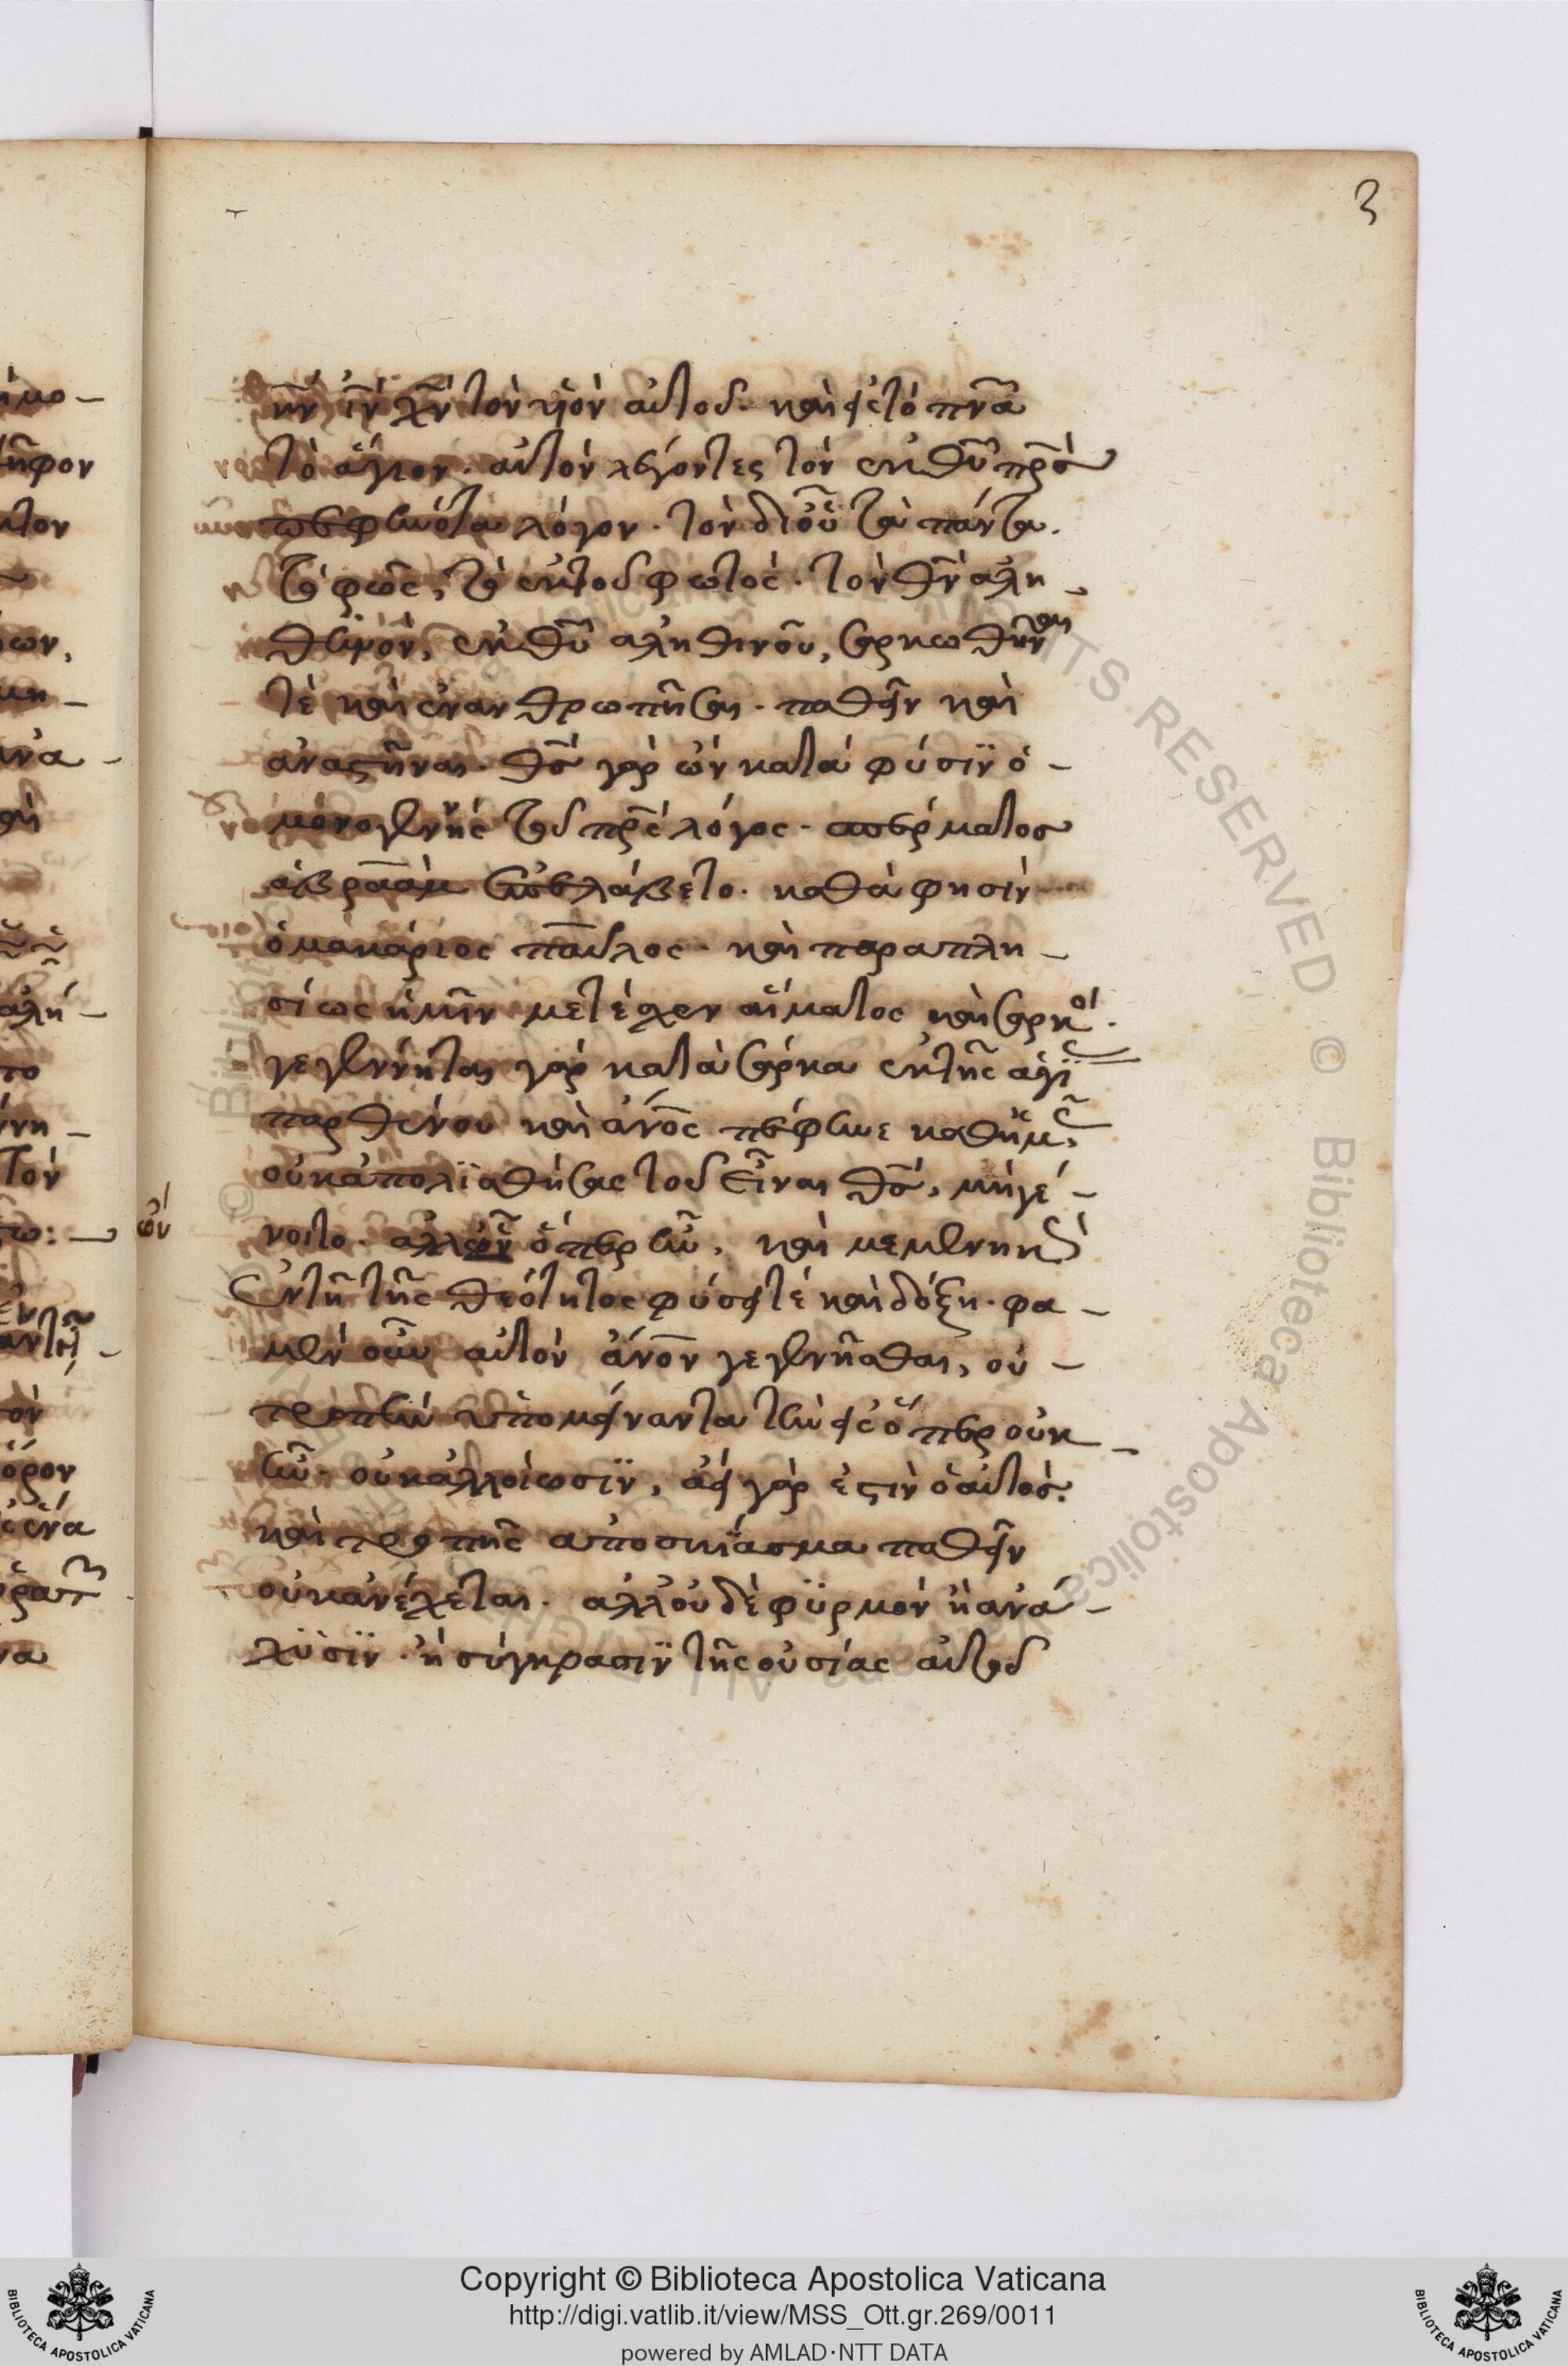 3
κν ιν χν τὸν υἱὸν αὐτοῦ. καὶ εἰς τὸ πνα
τὸ ἅγιον. αὐτὸν λέγοντες τὸν ἐκ θυ πρς
πεφηνότα λόγον. τὸν δι οὗ τὰ πάντα.
τὸ φῶς, τὸ ἐκ τοῦ φωτός. τὸν θν ἀλη-
θινόν, ἐκ θυ ἀληθινοῦ, σαρκωθῆναι
τὲ καὶ ἐνανθρωπῆσαι. παθεῖν καὶ
ἀναστῆναι. θς γὰρ ὢν κατὰ φύσιν ὁ-
μονογενὴς τοῦ πρς λόγος. σπέρματος
ἀβραὰμ ἐπελάβετο. καθά φησιν
ὁ μακάριος παῦλος. καὶ παραπλη-
σίως ἡμῖν μετέσχεν αἵματος καὶ σαρκός.
γεγέννηται γὰρ κατὰ σάρκα ἐκ τῆς ἁγί
παρθένου καὶ ἄνος πέφηνε καθ ἡμς,
οὐκ ἀπολισθήσας τοῦ εἶναι θς, μὴ γέ-
ὢν
νοιτο. ἀλλ ὢν ὅπερ ἦν, καὶ μεμενηκὼς
ἐν τῇ τῆς θεότητος φύσει τὲ καὶ δόξῃ. φα-
μὲν οὖν αὐτὸν ἄνον γεγενῆσθαι, οὐ-
τροπὴν ὑπομείναντα τὴν εἰς ὅπερ οὐκ-
ἦν. οὐκ ἀλλοίωσιν, ἀεὶ γάρ ἐστιν ὁ αὐτός.
καὶ τροπῆς ἀποσκίασμα παθεῖν
οὐκ ἀνέχεται. ἀλλ οὐδὲ φυρμὸν ἢ ἀνά-
χυσιν. ἢ σύγκρασιν τῆς οὐσίας αὐτοῦ
Copyright © Biblioteca Apostolica Vaticana
http://digi.vatlib.it/view/MSS_Ott.gr.269/0011
powered by AMLAD·NTT DATA